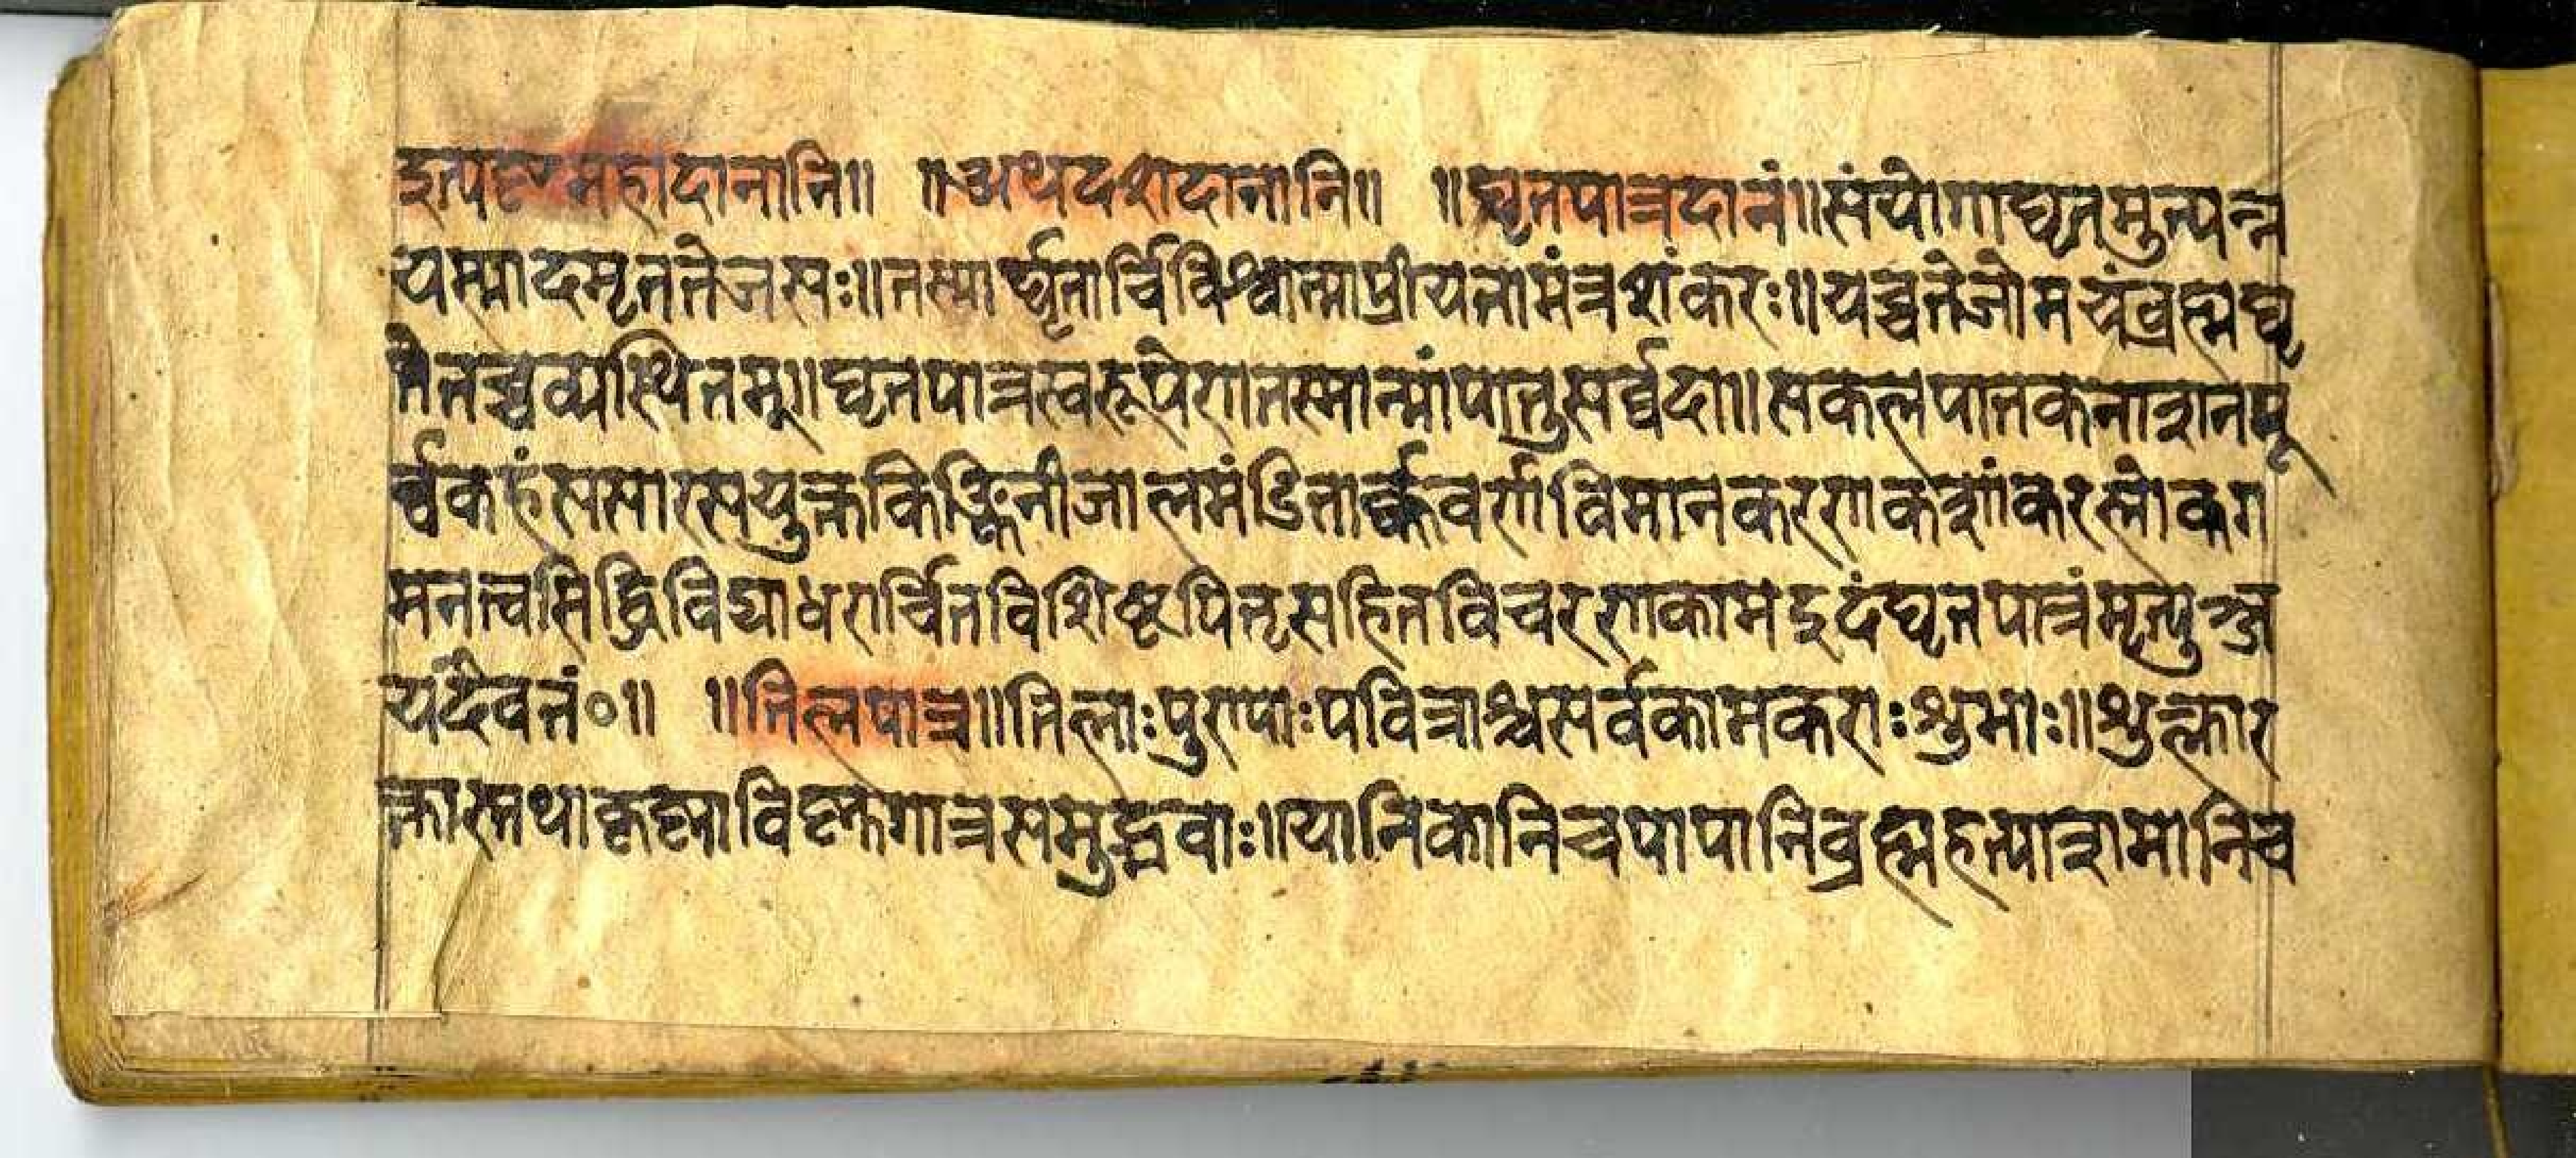 इत्यष्टमहादानानि॥ ॥अथदशदानानि॥ ॥घृतपात्रदानं॥संयोगाघृतमुत्पन्न
यस्मादमृततेजसः॥तस्माघृतार्चिविश्वात्माप्रीयतामंत्रशंकरः॥यच्चतेजोमयंब्रह्मघृ
तेतच्चव्यस्थितम्॥घृतपात्रस्वरूपेणतस्मान्मांपातुसर्व्वदा॥सकलपातकनाशनपू
र्व्वकहंससारसयुक्तकिङ्किनीजालमंडितार्क्कवर्णविमानकरणकशांकरलोकग
मनत्वसिद्धिविद्याधरार्चितविशिष्टपितृसहितविचरणकामइदंघृतपात्रंमृत्युञ्ज
यदैवतं०॥ ॥तिलपात्र॥तिलाःपुण्याःपवित्राश्चसर्वकामकराःशुभाः॥शुक्लार
क्तास्तथाकृष्णाविष्णुगात्रसमुद्भवाः॥यानिकानिचपापानिब्रह्महत्याशमानिच